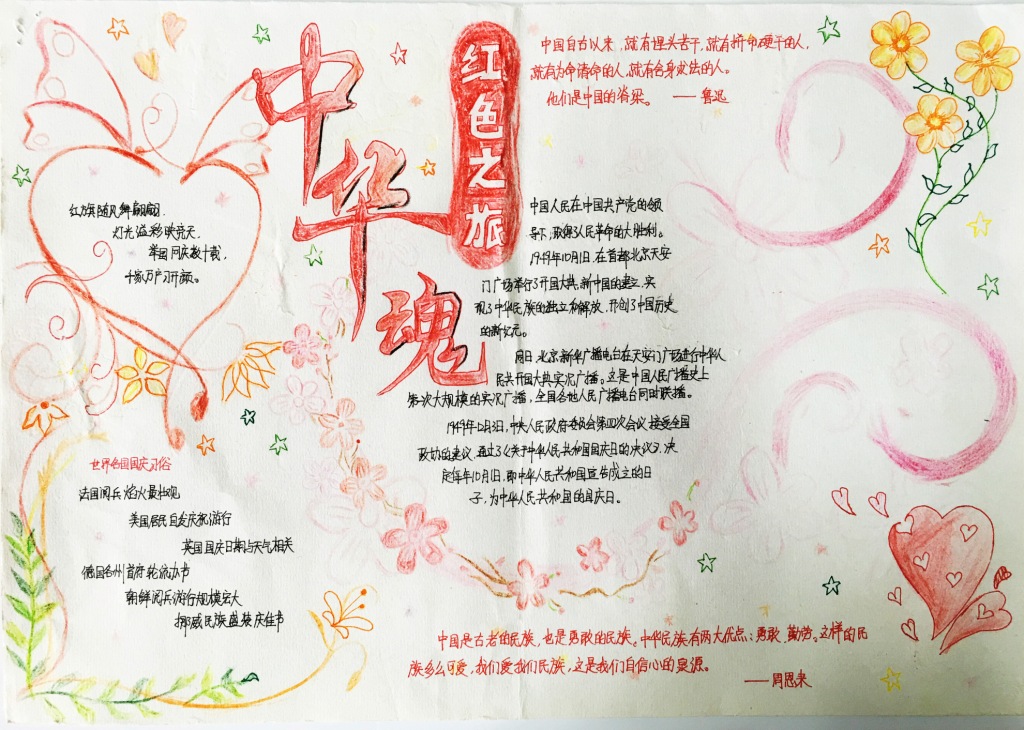 中华魂
红色之旅
中国自古以来,就有埋头苦干,就有拼命硬干的人,
就有为命请命的人,就有舍身求法的人。
他们是中国的脊梁。——鲁迅
红旗随风舞翩翩.
灯光溢彩映亮天,
举国同庆数十载,
千家万户习开颜。
中国人民在中国共产党的领
导下,取得人民革命的大胜利。
1949年10月1日,在首都北京天安
门广场举行了开国大典,新中国的建立,实
现了中华民族的独立和解放,开创了中国历史
的新纪元。
同日,北京新华广播电台在天安门广场进行中华人
民共开国大典实况广播。这是中国人民广播史上
第次大规模的实况广播,全国各地人民广播电台同时联播。
1949年12月3日,中央人民政府委员会第四次会议,接受全国
政协的建议,通过了《关于中华人民共和国国庆日的决议》,决
定每年10月1日,即中华人民共和国宣告成立的日
子,为中华人民共和国的国庆日。
世界各国国庆习俗
法国阅兵焰火最壮观
美国居民自发庆祝游行
英国国庆日期与天气相关
俄国各州首府轮流办节
朝鲜阅兵游行规模宏大
挪威民族盛装庆佳节
中国是古老的民族,也是勇敢的民族。中华民族有两大优点:勇敢,勤劳。这样的民
族多么可爱,我们爱我们民族,这是我们自信心的泉源。
——周恩来